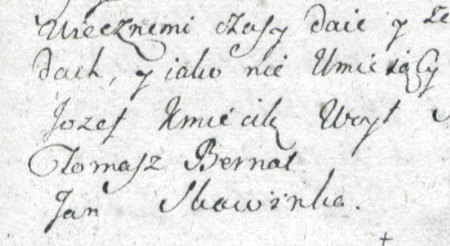 Wiecznemi czasy daie y ze
dach, y jako nie Umieiący
Jozef Kmiecik Woyt
Tomasz Bernat
Jan Skawinka.